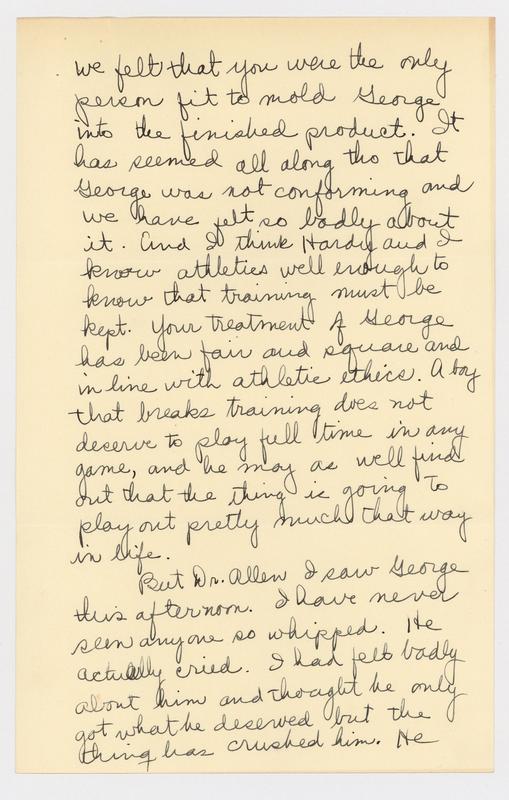 we felt that you were the only
person fit to mold George
into the finished product. It
has seemed all along tho that
George was not conforming and
we have felt so badly about
it. And I think Hardy and I
know athletics well enough to
know that training must be
kept. Your treatment of George
has been fair and square and
in line with athletic ethics. A boy
that breaks training does not
deserve to play full time in any
game, and he may as well find
out that the thing is going to
play out pretty much that way
in life.
But Dr. Allen I saw George
this afternoon. I have never
seen anyone so whipped. He
actually cried. I had felt badly
about him and thought he only
got what he deserved but the
thing has crushed him. He